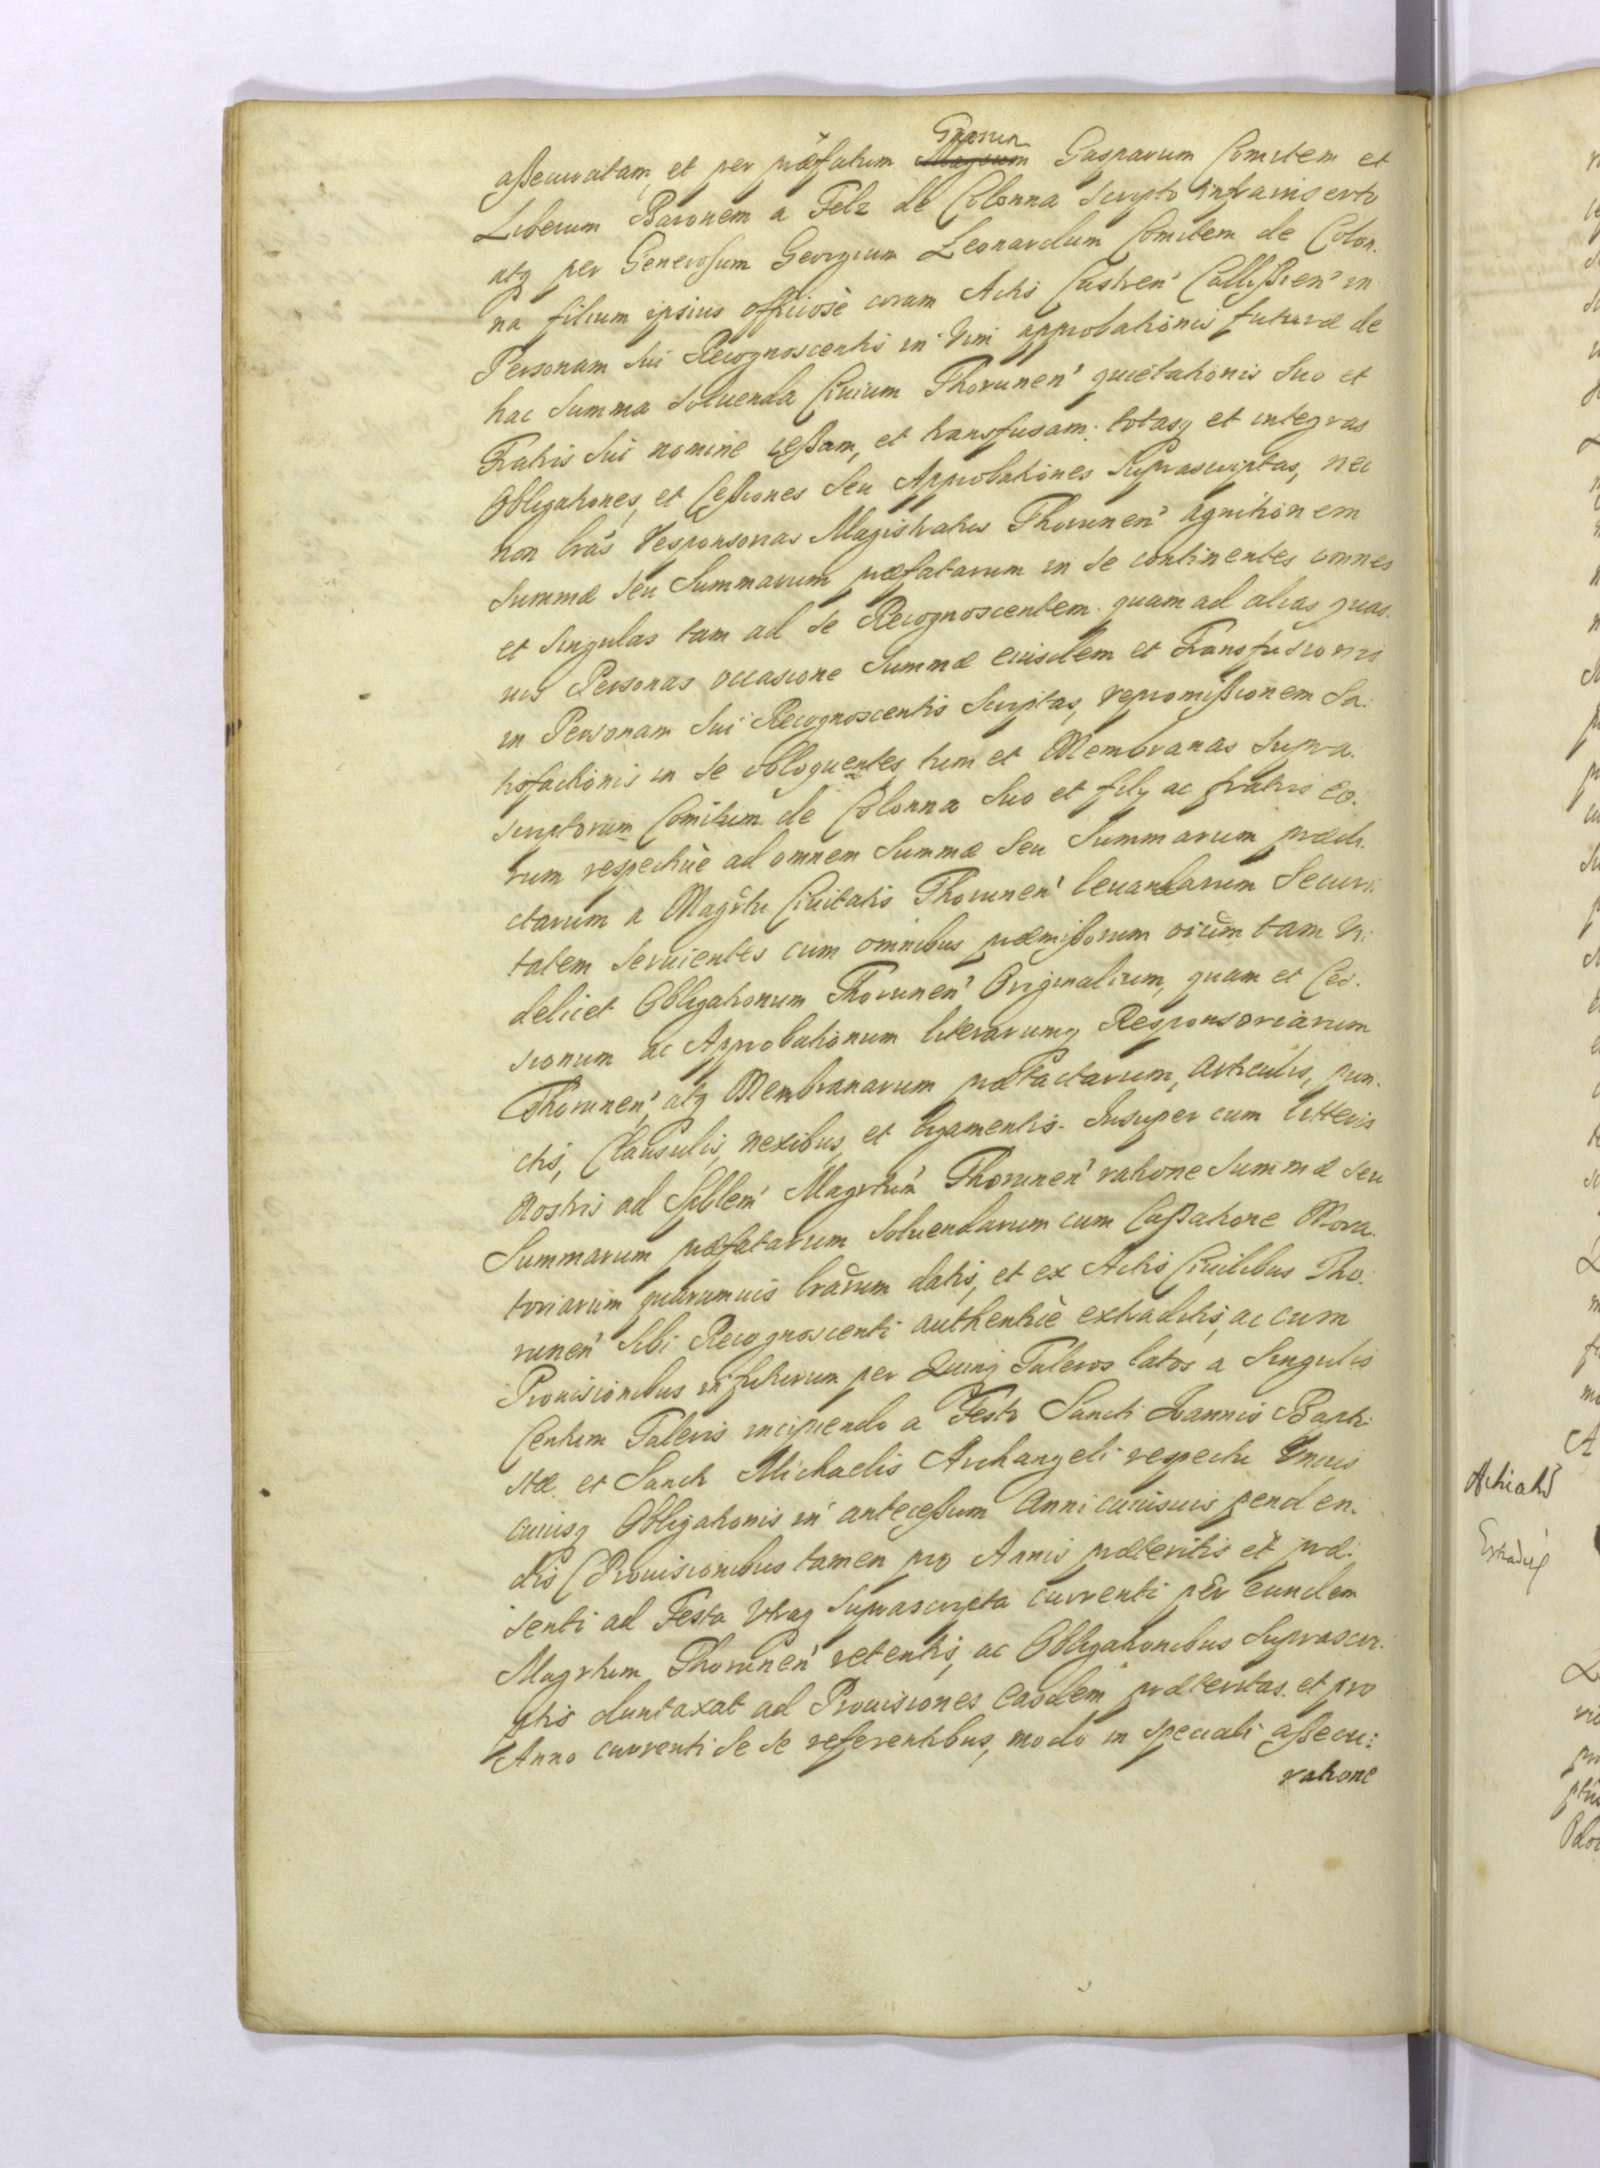 assecuratam, et per præfatum Gnosum Magnum Gasparum Comitem et
Liberum Baronem a Felz de Colonna scripto infrainserto
atq per Generosum Georgium Leonardum Comitem de Colon.
na filium ipsius officiosè coram Actis Castren' Callissien' in
Personam sui Recognoscentis in vim approbationis futuræ de
hac summa soluenda Ciuium Thorunen' quietationis suo et
Fratris sui nomine cessam, et transfusam: totasq et integras
Obligationes, et Cessiones seu Approbationes suprascriptas, nec
non lrás responsorias Magistratus Thorunen' agnitionem
summæ seu summarum præfatarum in se continentes omnes
et singulas tam ad se Recognoscentem quam ad alias quas.
uis Personas occasione summæ eiusdem et Transfusionis
in Personam sui Recognoscentis scriptas, repromissionem sa:
tisfactionis in se obloquentes, tum et Membranas supra.
scriptorum Comitum de Colonna suo et filij ac fratris eo.
rum respectiuè ad omnem summæ seu summarum prædi.
ctarum a Magrtu Ciuitatis Thorunen' leuandarum securi:
tatem seruientes cum omnibus præmissorum oium tam vi:
delicet Obligationum Thorunen' Originalium, quam et Ces.
sionum ac Approbationum literarumq Responsoriarum
Thorunen', atq Membranarum prætactarum, articulis, pun.
ctis, Clausulis, nexibus, et ligamentis. Insuper cum litteris
Nostris ad spblem Magrtum Thorunen' ratione summæ seu
Summarum præfatarum soluendarum cum Cassatione Mora.
toriarum quarumuis lrarum datis, et ex Actis Ciuilibus Tho:
runen' sibi Recognoscenti authenticè extraditis, ac cum
Prouisionibus in futurum per Quinq Taleros latos a singulis
Centum Taleris incipiendo a Festo Sancti Joannis Bapti:
stæ et Sancti Michaelis Archangeli respectu vnius
cuiusq Obligationis in antecessum Anni cuiusuis penden.
dis (Prouisionibus tamen pro Annis præteritis et præ:
senti ad Festa vtraq suprascripta currenti per eundem
Magrtum Thorunen' retentis, ac Obligationibus suprascri.
ptis duntaxat ad Prouisiones easdem præteritas et pro
Anno currenti se se referentibus, modo in speciali assecu:
ratione